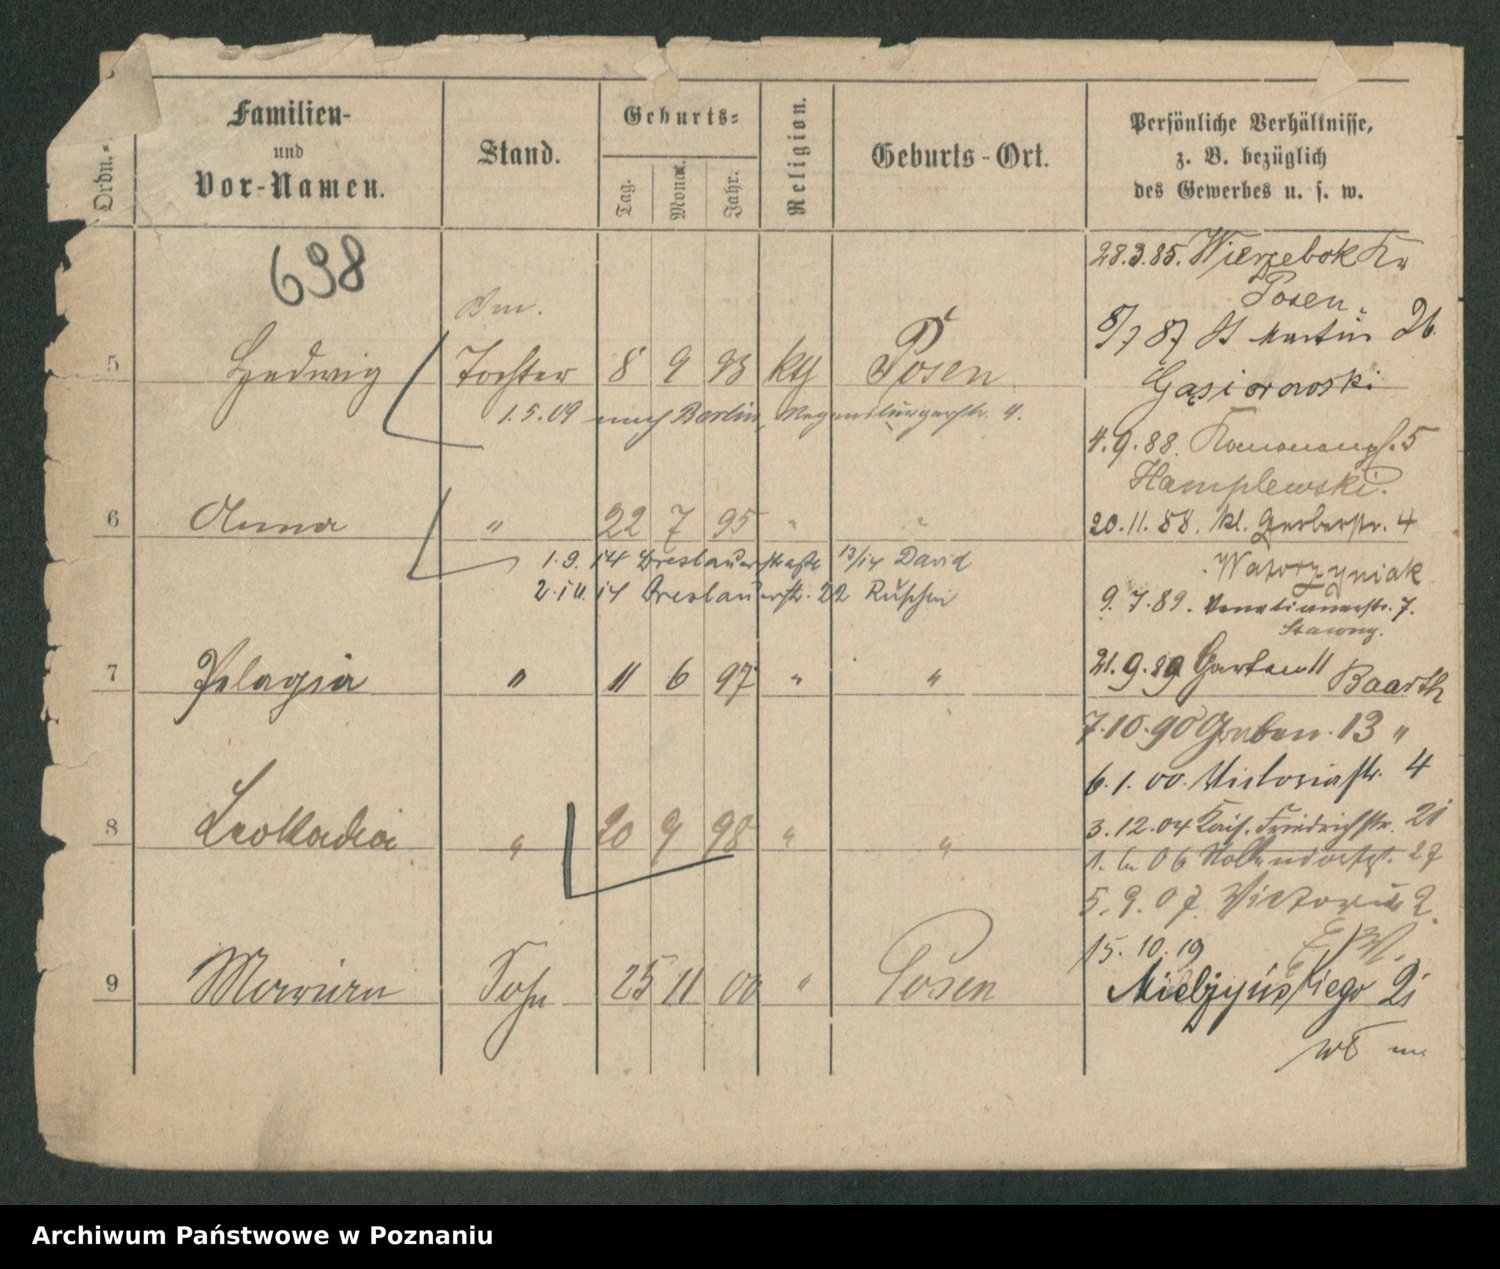 Ordn.=
Familien-
und
Vor-Namen.
Stand.
Geburts=
Tag.
Monat.
Jahr.
Religion.
Geburts-Ort.
Persönliche Verhältnisse,
z. B. bezüglich
des Gewerbes u. s. w.
698
5 Hedwig Tochter 8 9 93 kth Posen
1.5.09 nach Berlin, Regensburgerstr. 4.
6 Anna " 22 7 95 " "
1.9.14 Breslauerstraße 13/14 David
2.10.14 Breslauerstr. 22
7 Pelagia " 11 6 97 " "
8 Leokadia " 20 9 98 " "
9 Sohn 25 11 00 " Posen
28.3.85. Wierzebok
Posen.
8/7 87 St Martin 26
Gąsiorowski
4.9.88. 5
Hamplewski.
20.11.88. kl. Gerberstr. 4
Wawrzyniak
9.7.89. Venetianerstr. 7.
21.9.89 Garten 11 Baarth
7.10.90 Graben. 13 "
6.1.00. Victoriastr. 4
3.12.04 Kais. Friedrichstr. 21
1. 06 27
5.9.07. Victoria 2.
15.10.19
Mielżyńskiego 21
Archiwum Państwowe w Poznaniu